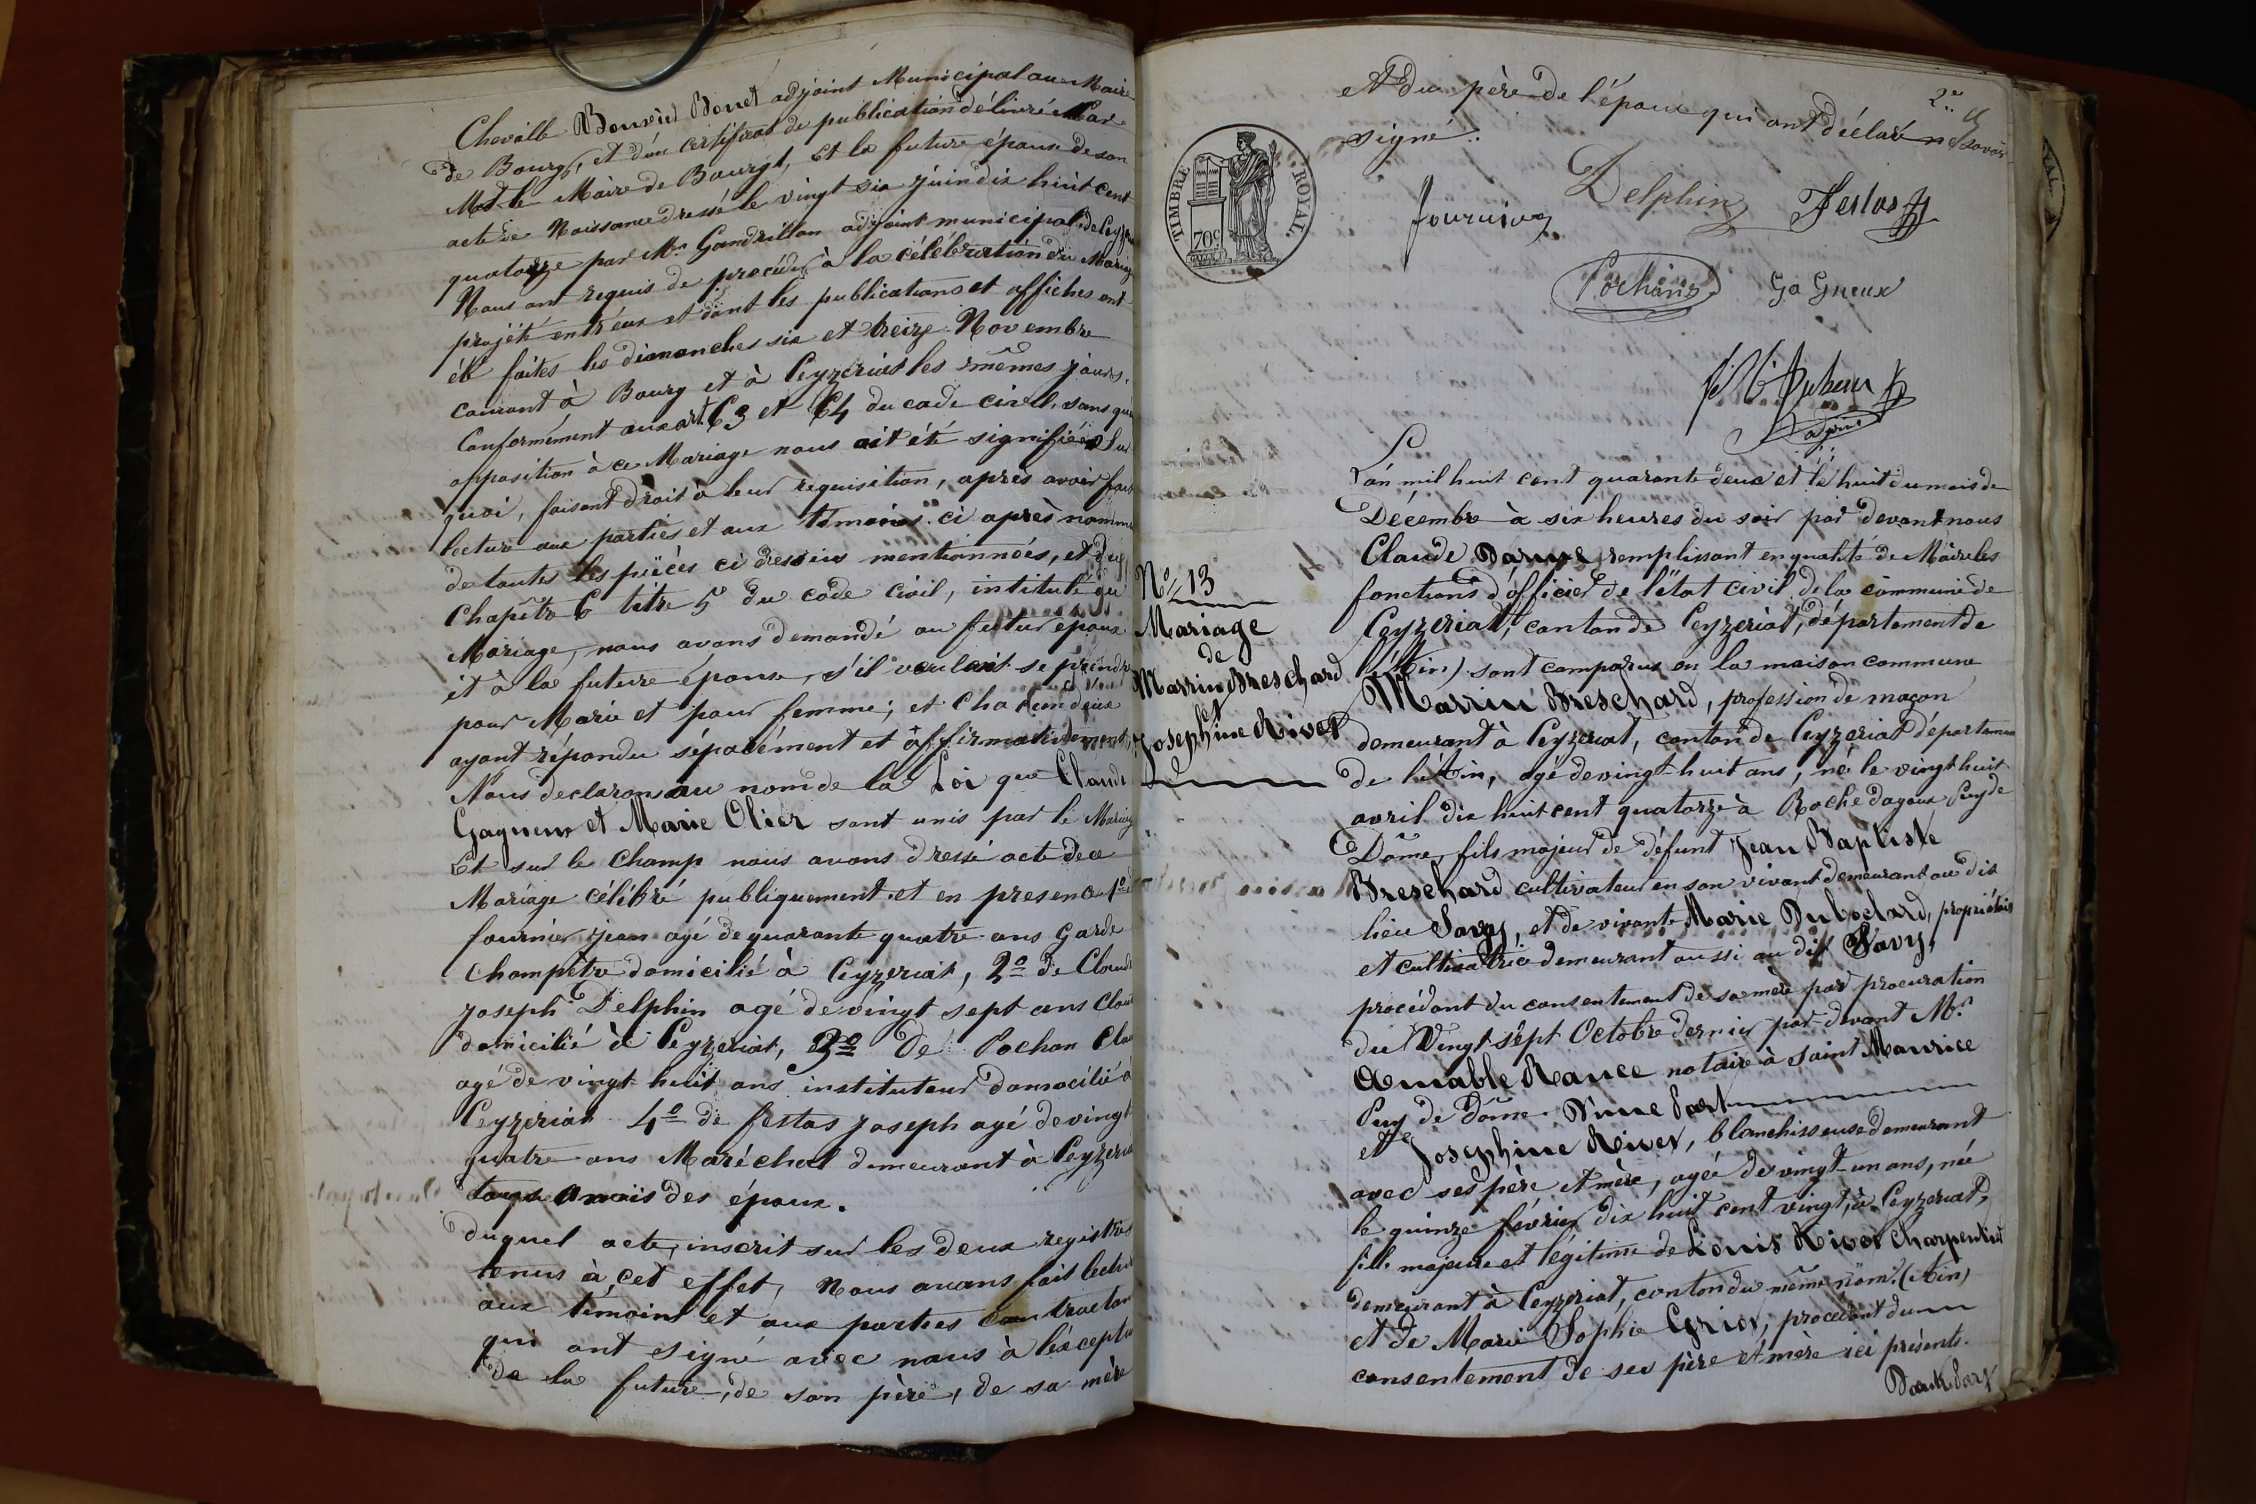 Chevalle Bouvier Bonet adjoint Municipal au Maire
de Bourg, et d'un certificat de publication délivré par
Mr le Maire de Bourg, et la future épouse de son
acte de Naissance dressé le vingt six juin dix huit cent
quatorze par Mr Gandrillon adjoint municipal de Ceyz
Nous ont requis de procéder à la célébration du Mariag
projété entr'eux et dont les publications et affiches ont
été faites les dimanches six et treize Novembre
courant à Bourg et à Ceyzeriat les mêmes jours,
Conformément aux art. 63 et 64 du code civil, sans qu'au
opposition à ce Mariage nous ait été signifiée Sur
quoi, faisant droit à leur réquisition, après avoir fait
lecture aux parties et aux témoins ci après nommé
de toutes les pièces ci dessus mentionnées, et du
Chapitre 6 titre 5e du code civil, intitulé du
Mariage, nous avons demandé au futur époux
et à la future épouse, s'il veulent se prendre
pour Marie et pour femme; et chacun d'eux
ayant répondu séparément et affirmativement,
Nous declarons au nom de la Loi que Claude
Gagneux et Marie Olier sont unis par le Mariag
Et sur le champ nous avons dressé acte de ce
Mariage célébré publiquement et en presence 1º de
fournier jean agé de quarante quatre ans Garde
Champêtre domicilié à Ceyzeriat, 2º de Claude
Joseph Delphin agé de vingt sept ans Clou
domicilié à Ceyzeriat, 3º de Pochon Cla
agé de vingt huit ans instituteur domicilié à
Ceyzeriat 4º de festas joseph agé de vingt
quatre ans Maréchal demeurant à Ceyzeria
tous amis des époux.
duquel acte, inscrit sur les deux registres
tenus à cet effet, Nous avons fait lectu
aux témoins et aux parties contractan
qui ont signé avec nous à l'éxceptio
de la future, de son père, de sa mère
Et du père de l'époux qui ont déclaré ne savoir
signé.
TIMBRE ROYAL.
70c
fournier Delphin Festas
Pochon Gagneux
adjoint
L'an mil huit cent quarante deux et le huit du mois de
Décembre à six heures du soir par devant nous
Claude Darme remplissant en qualité de Maire les
fonctions d'officier de l'état civil de la commune de
Ceyzeriat, canton de Ceyzériat, département de
l'Ain) sont comparus en la maison commune
Nº 13
Mariage
de
Marrin Breschard
et
Josephine Rivet
Marrin Breschard, profession de maçon
demeurant à Ceyzeriat, canton de Ceyzériat départemen
de l'Ain, agé de vingt-huit ans, né le vingt huit
avril dix huit cent quatorze à Roche dagoux Puy de
Dôme, fils majeur de défunt Jean Baptiste
Breschard cultivateur en son vivant demeurant au dit
lieu Savy, et de vivante Marie Duboclard, propriétair
et cultivatrice demeurant aussi au dit Savy,
procédant du consentement de sa mère par procuration
du Vingt sept Octobre dernier par devant Mr.
Amable Rance notaire à Saint Maurice
Puy de Dôme. D'une Part
et Josephine Rivet, blanchisseuse demeurant
avec ses père et mère, agée de vingt-un ans, née
le quinze février dix huit cent vingt, à Ceyzeriat,
fille majeure et légitime de Louis Rivet Charpentier
demeurant à Ceyzeriat, canton du même nom. (Ain)
et de Marie Sophie procédant du
consentement de ses père et mère ici présents.
D'autre Part